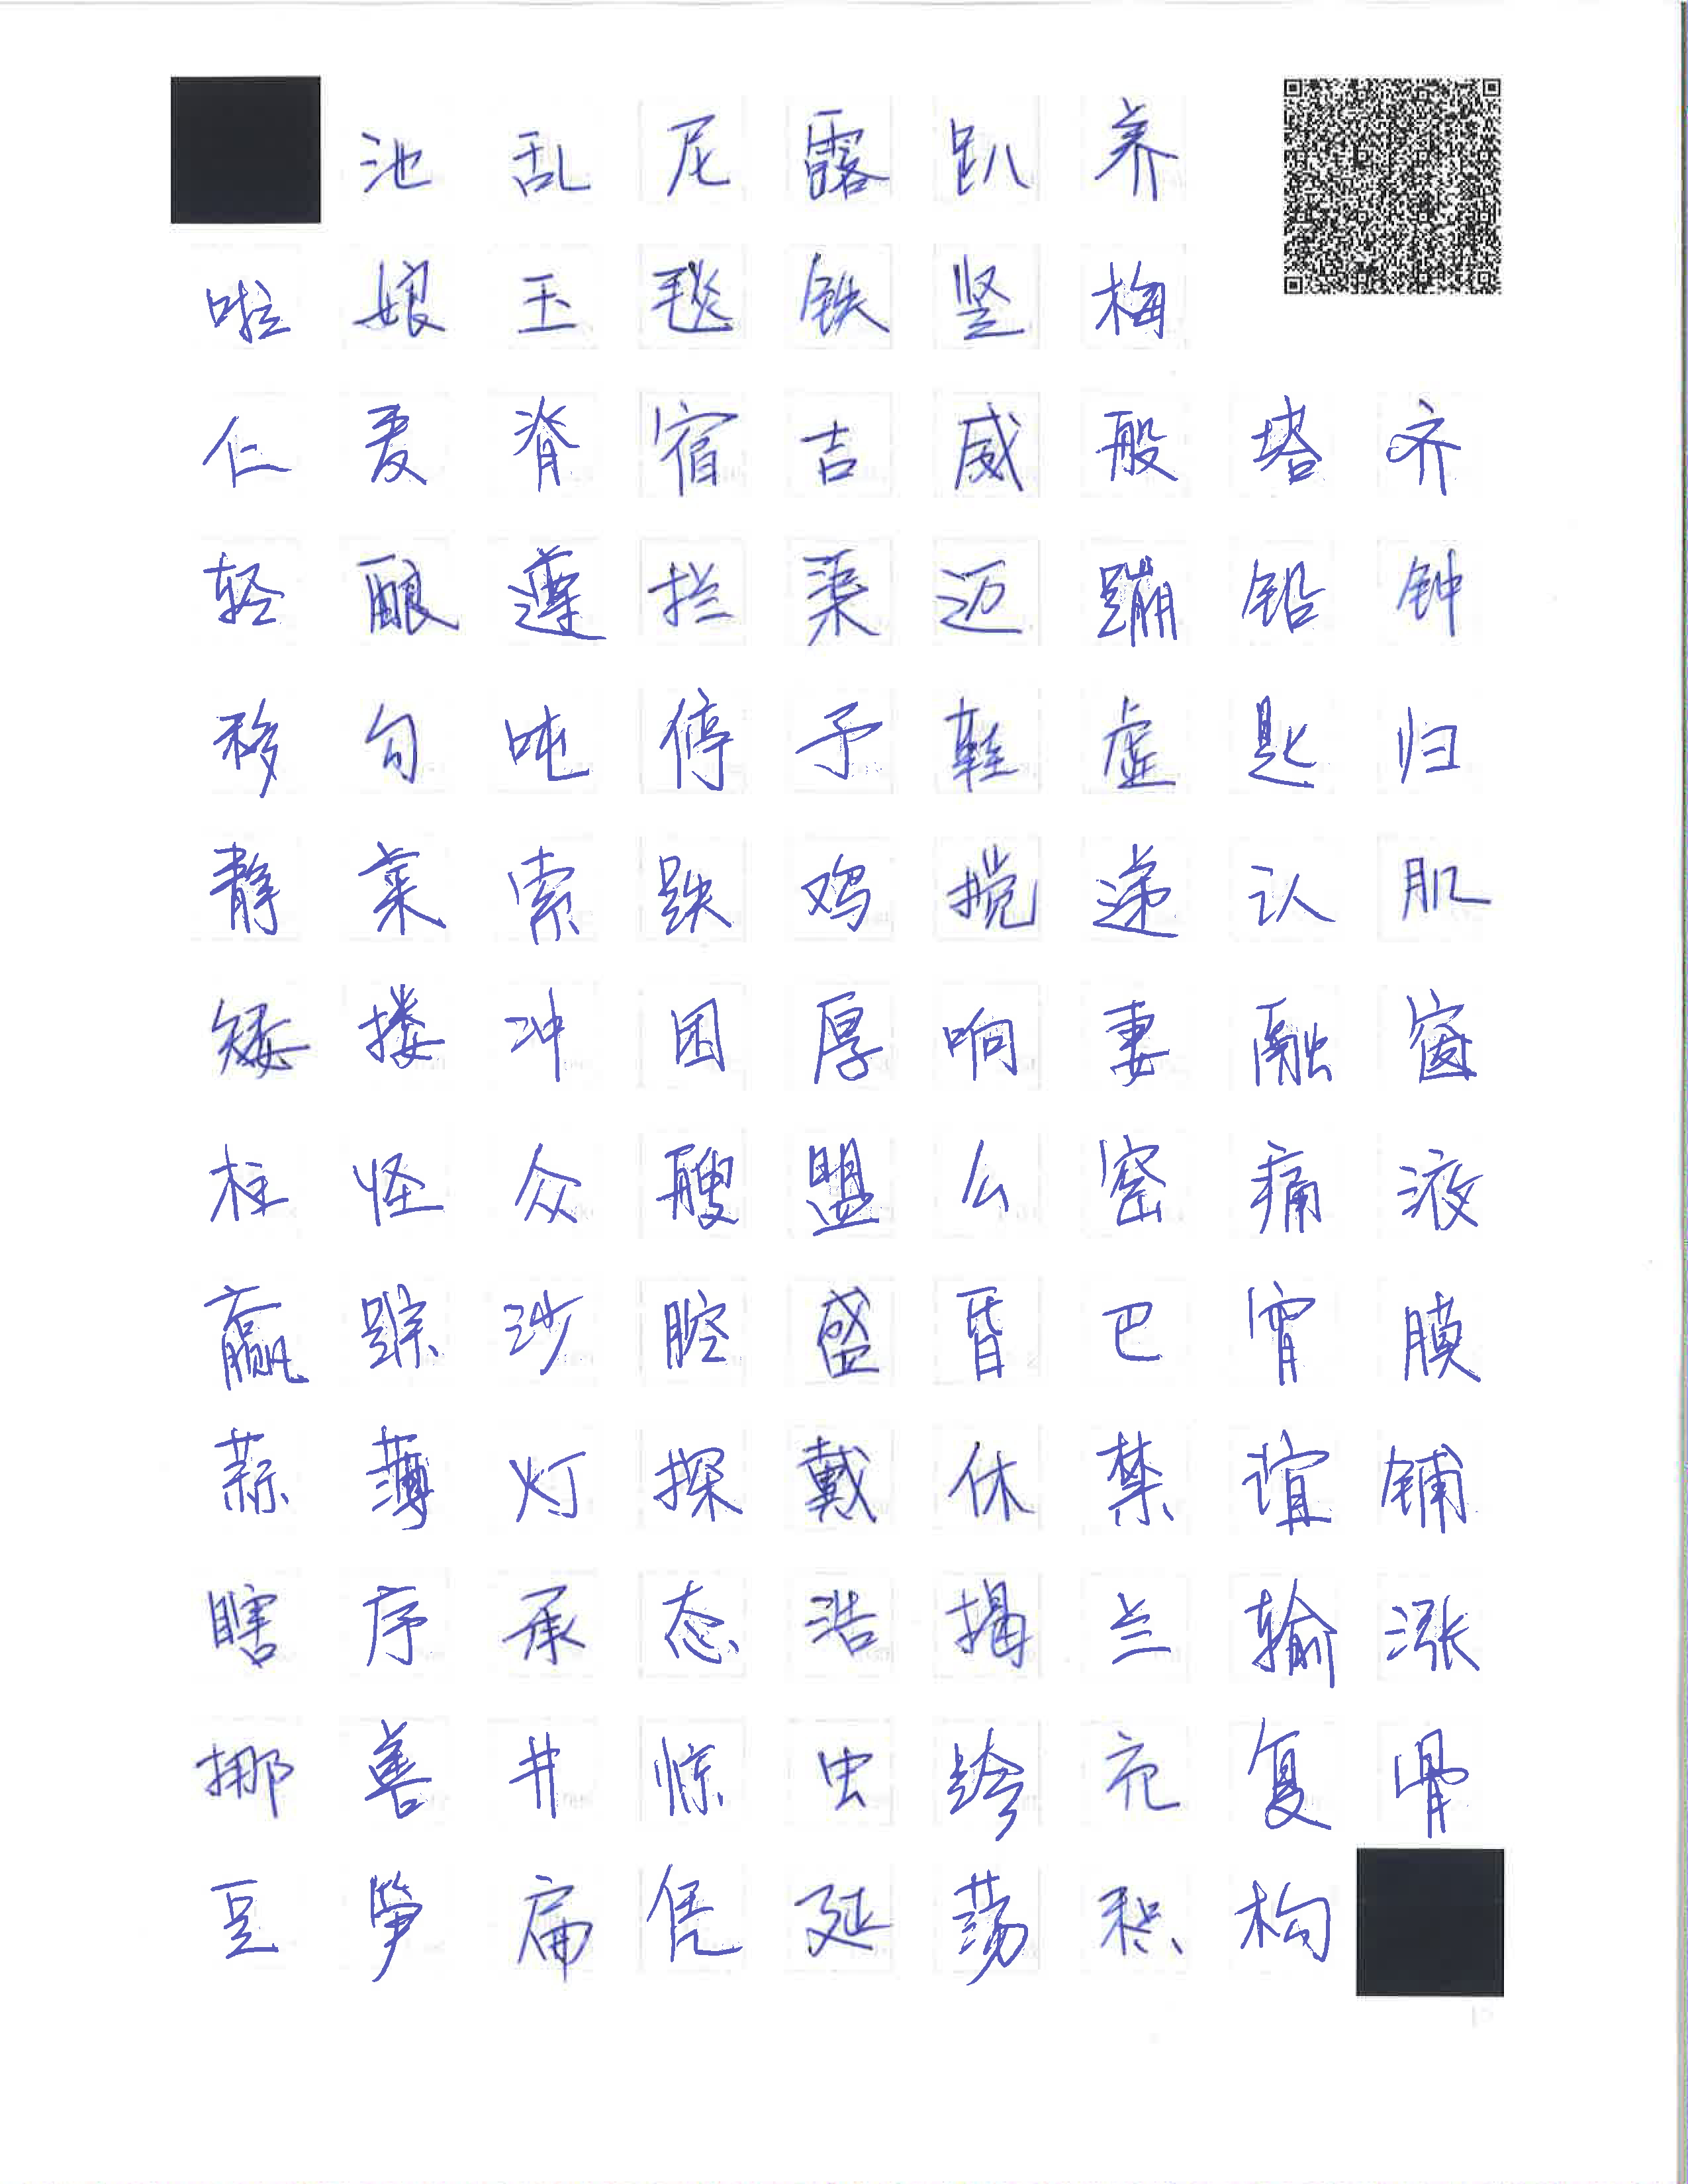 池乱尼露趴养
啦娘玉毯铁竖梅
仁麦脊宿吉威般塔齐
轻酿遵拦渠迈蹦铅钟
移句吨停予鞋虚匙归
静菜索跌鸡搅递认肌
矮搂冲困厚响妻融窗
柱怪众艘盟么密痛液
赢踪沙腔盛昏巴宵膜
蒜薄灯探戴休禁谊铺
瞎序承态浩揭兰输涨
挪善井惊虫跨充复骨
豆笋扁凭延荡积构